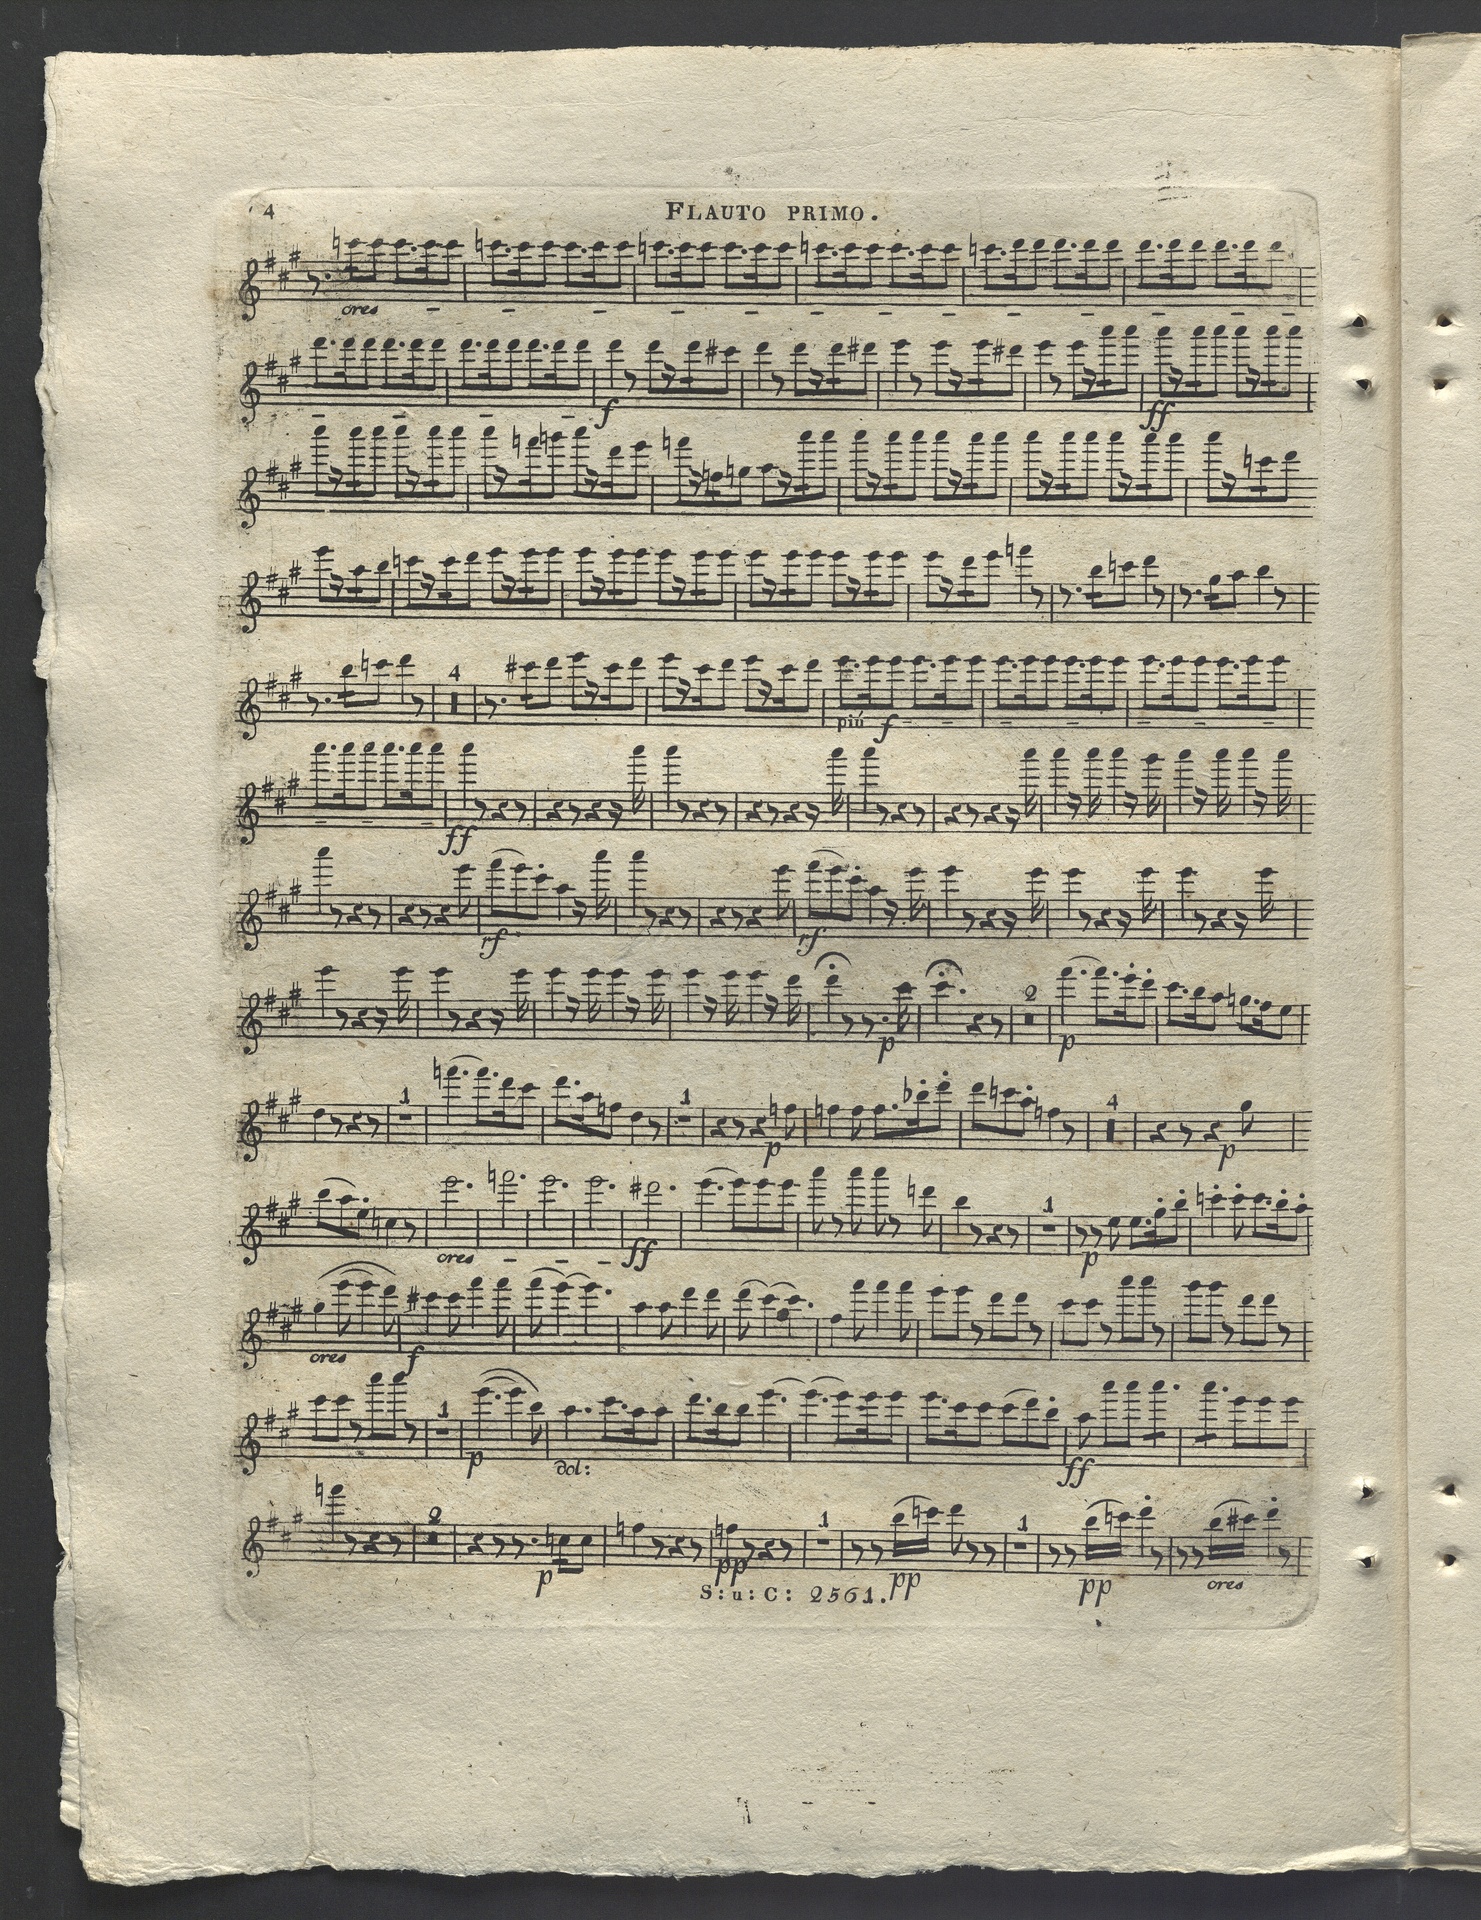 4
FLAUTO PRIMO.
cres
f
ff
4
più f
ff
rf
rf
p
2
p
1
1
p
4
p
cres
ff
1
p
cres
f
1
p
dol:
ff
2
p
pp
1
pp
1
pp
cres
S:u:C: 2561.